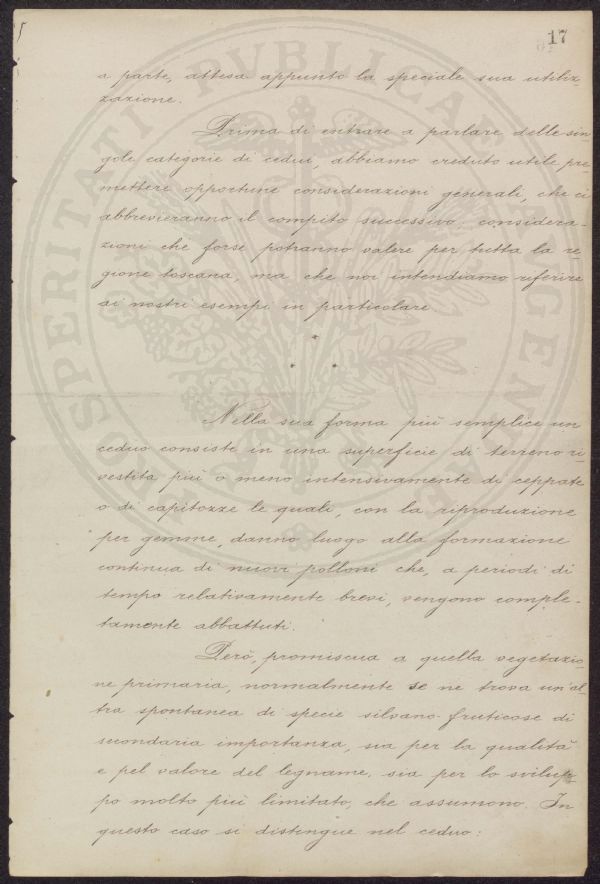 17
a parte, attesa appunto la speciale sua utiliz-
zazione.
Prima di entrare a parlare delle sin
gole categorie di cedui, abbiamo creduto utile pre-
mettere opportune considerazioni generali, che ci
abbrevieranno il compito successivo, considera-
zioni che forse potranno valere per tutta la re-
gione toscana, ma che noi intendiamo riferire
ai nostri esempi in particolare
* * *
Nella sua forma più semplice un
ceduo consiste in una superficie di terreno ri-
vestita più o meno intensivamente di ceppate
o di capitozze le quali, con la riproduzione
per gemme, danno luogo alla formazione
continua di nuovi polloni che, a periodi di
tempo relativamente brevi, vengono comple-
tamente abbattuti.
Però, promiscua a quella vegetazio-
ne primaria, normalmente se ne trova un'al-
tra spontanea di specie silvano-fruticose di
secondaria importanza, sia per la qualità
e pel valore del legname, sia per lo svilup-
po molto più limitato, che assumono. In
questo caso si distingue nel ceduo:
PROSPERITATI PVBLICAE AVGENDAE